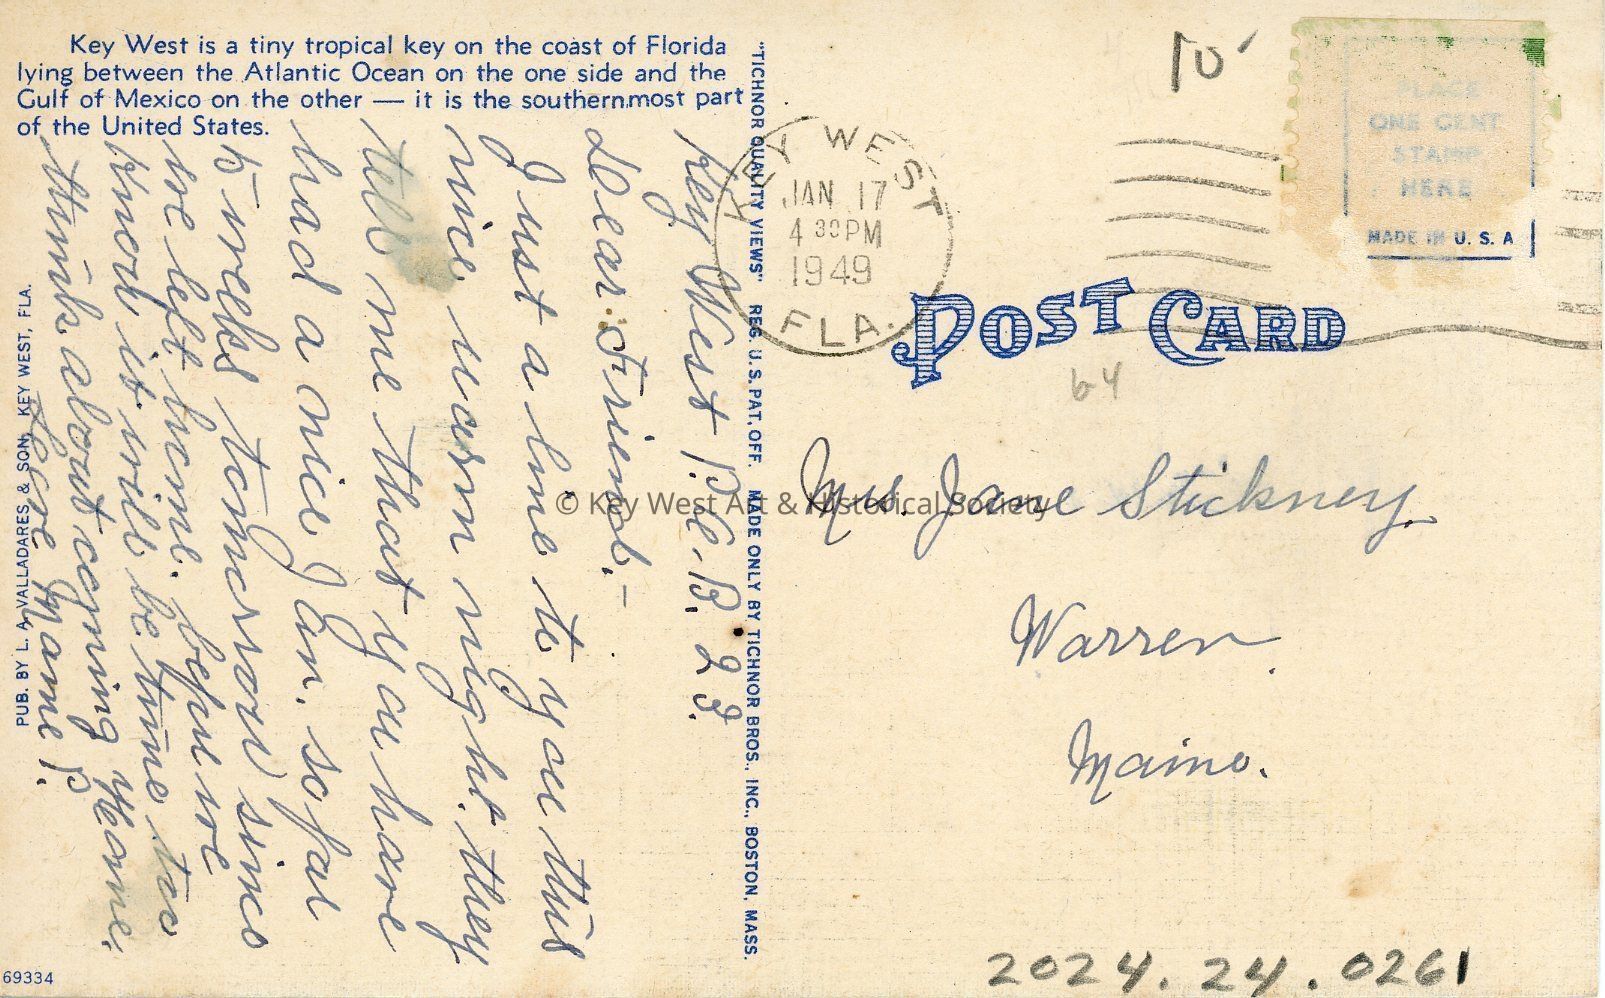 Key West is a tiny tropical key on the coast of Florida
lying between the Atlantic Ocean on the one side and the
Gulf of Mexico on the other — it is the southernmost part
of the United States.
Key West P.O.B. 23.
Dear Friend.—
Just a line to you this
nice warm night. they
tell me that you have
had a nice Jan. so far
5 weeks tomorrow since
we left home. before we
know it will be time to
think about coming Home.
Love Mame P.
PUB. BY L. A. VALLADARES & SON, KEY WEST, FLA.
69334
"TICHNOR QUALITY VIEWS" REG. U.S. PAT. OFF. MADE ONLY BY TICHNOR BROS., INC., BOSTON, MASS.
KEY WEST
JAN 17
4 30 PM
1949
FLA.
10
PLACE
ONE CENT
STAMP
HERE
MADE IN U.S.A
POST CARD
64
Mrs. Jane Stickney
Warren.
Maine.
© Key West Art & Historical Society
2024.24.0261